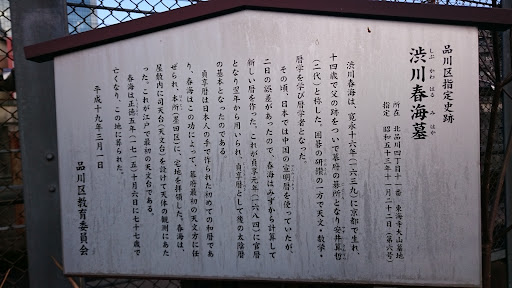 品川区指定史跡
渋川春海墓
しぶ かわ はる み はか
所在 北品川四丁目十一番 東海寺大山墓地
指定 昭和五十三年十一月二十二日(第六号)
渋川春海は、寛永十六年(一六三九)に京都で生れ、
十四歳で父の跡をついで幕府の碁所となり安井算哲
(二代)と称した。囲碁の研鑽の一方で天文・数学・
暦学を学び暦学者となった。
その頃、日本では中国の宣明暦を使っていたが、
二日の誤差があったので、春海はみずから計算して
新しい暦を作った。これが貞享元年(一六八四)に官暦
となり翌年から用いられ、貞享暦として後の太陰暦
の基本となったのである。
貞享暦は日本人の手で作られた初めての和暦であ
り、春海はこの功によって、幕府最初の天文方に任
ぜられ、本所(墨田区)に宅地を拝領した。春海は、
屋敷内に司天台(天文台)を設けて天体の観測にあた
った。これが江戸で最初の天文台である。
春海は正徳五年(一七一五)十月六日に七十七歳で
亡くなり、この地に葬られた。
平成十九年三月一日
品川区教育委員会